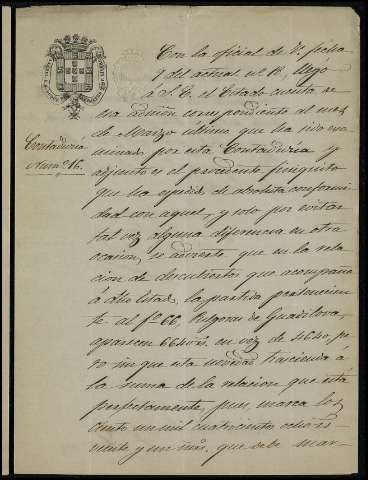 Con la oficial de V. fecha
9 del actual nº 18, llegó
á S. E. el Estado cuenta
correspondiente al mes
de Marzo último que ha sido exa
minada por esta Contaduria y
adjunto es el procedente finiquito
que ha expedido de absoluta conformi
dad con aquel, y solo por evitar
tal vez alguna diferencia en otra
ocasion, se advierte que en la rela
cion de descubiertos que acompaña
á dicho Estado, la partida pertenecien
te al fº 66, de
aparecen 6640 rs. en vez de 4640, pe
ro sin que esta trascienda á
la suma de la relacion que está
perfectamente, pues marca los
ciento un mil cuatrocientos ochenta
veinte y un mrs. que debe mar-
Contaduria
Num.º 16.